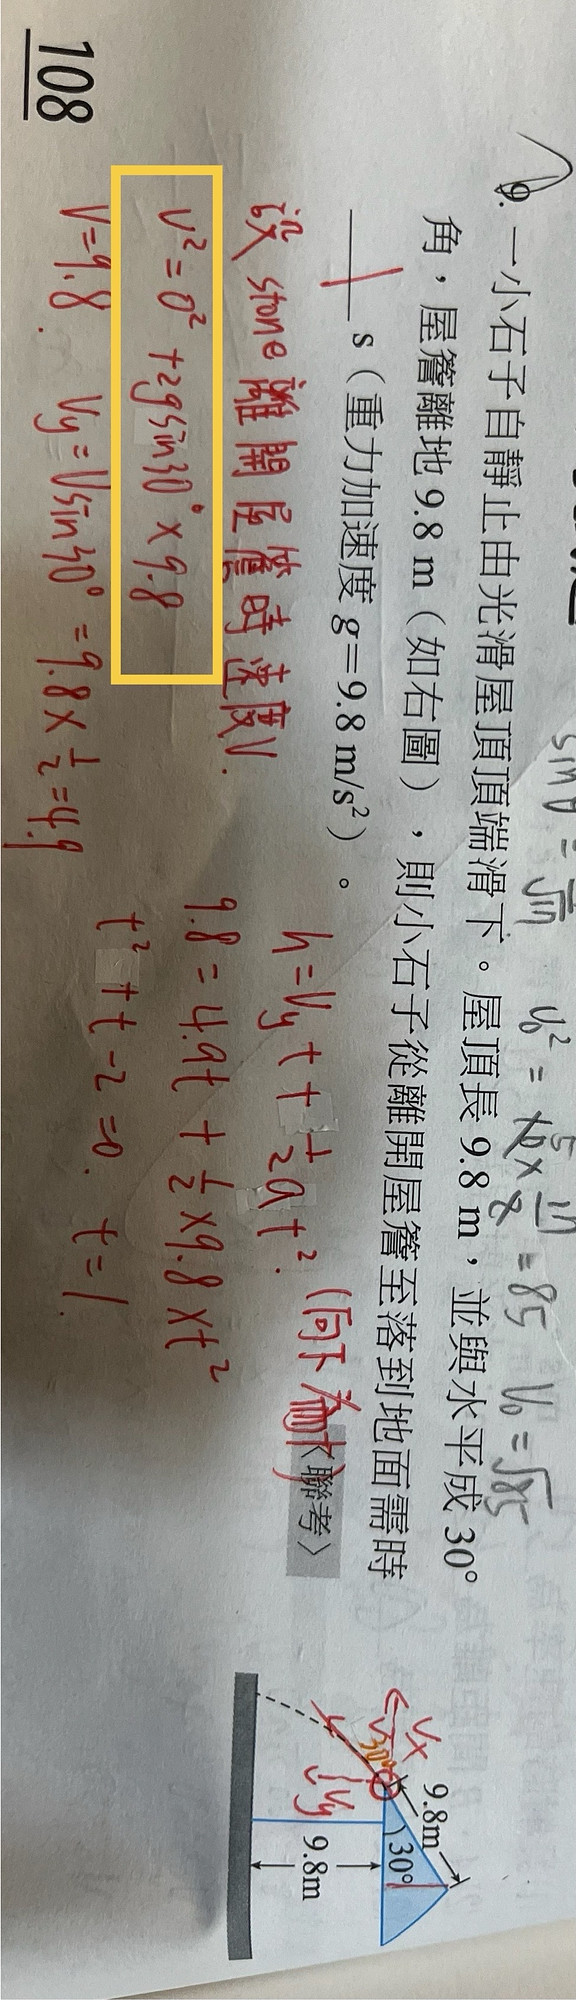 sinθ = 
v₀² = 
= 85 v₀ = √85
9. 一小石子自靜止由光滑屋頂頂端滑下。屋頂長 9.8 m,並與水平成 30°
角,屋簷離地 9.8 m(如右圖),則小石子從離開屋簷至落到地面需時
1 s(重力加速度 g=9.8 m/s²)。
〈聯考〉
設 stone 離開屋簷時速度V.
V² = 0² + 2gsin30° × 9.8
V=9.8. Vy = Vsin30° = 9.8 × 1/2 = 4.9
h = Vyt + 1/2at². (向下為+)
9.8 = 4.9t + 1/2 × 9.8 × t²
t² + t - 2 = 0. t = 1.
Vx
30°
V
Vy
9.8m
30°
9.8m
108